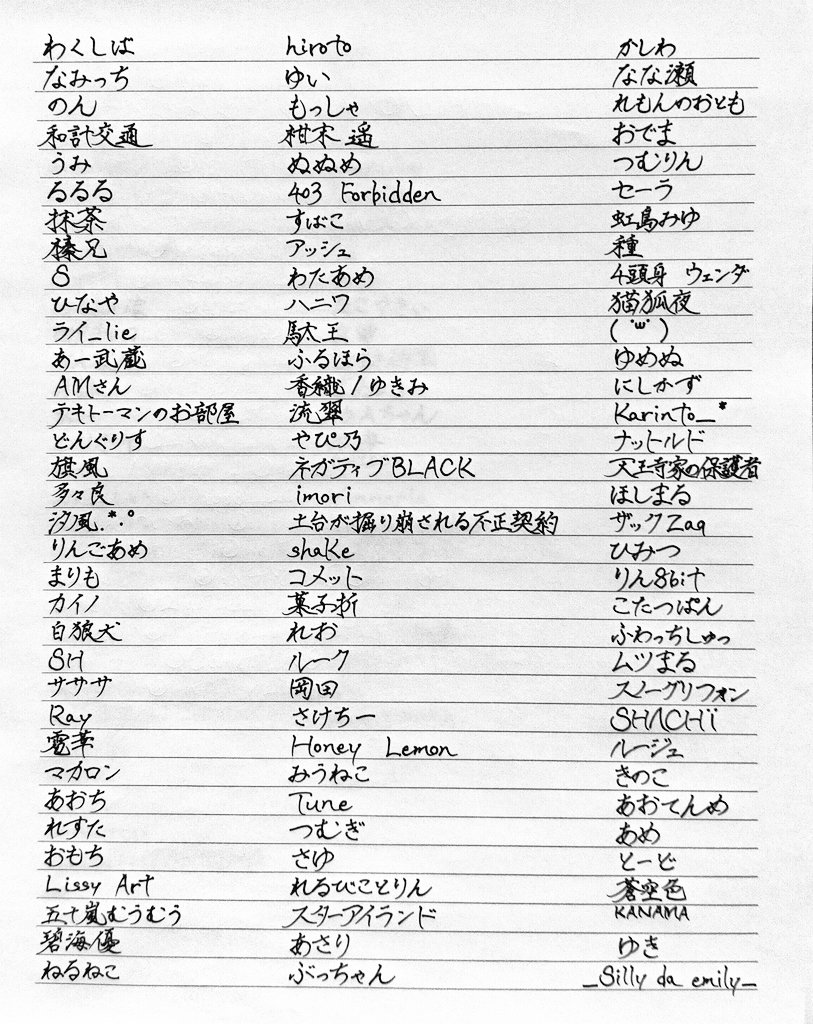 わくしば hiroto かしわ
なみっち ゆい なな瀬
のん もっしゃ れもんのおとも
和計交通 柑末 遥 おでま
うみ ぬぬめ つむりん
るるる 403 Forbidden セーラ
抹茶 すばこ 虹島みゆ
榛兄 アッシュ 種
S わたあめ 4頭身 ウェンダ
ひなや ハニワ 猫狐夜
ライ_lie 駄王 ( ˙ω˙ )
あー武蔵 ふるほら ゆめぬ
AMさん 香織/ゆきみ にしかず
テキトーマンのお部屋 流翠 Karinto_*
どんぐりす やぴ乃 ナットルド
旗風 ネガティブBLACK 天王寺家の保護者
多々良 imori ほしまる
汐風.*・° 土台が掘り崩される不正契約 ザックZaq
りんごあめ shake ひみつ
まりも コメット りん8bit
カイノ 菓子折 こたつぱん
白狼犬 れお ふわっちしゅっ
SH ルーク ムツまる
ササササ 岡田 スノーグリフォン
Ray さけちー SHACHi
雫華 Honey Lemon ルージュ
マカロン みうねこ きのこ
あおち Tune あおてんめ
れすた つむぎ あめ
おもち さゆ とーど
Lissy Art れるびことりん 蒼空色
五十嵐むうむう スターアイランド KANAMA
碧海優 あさり ゆき
ねるねこ ぶっちゃん _Silly da emily_